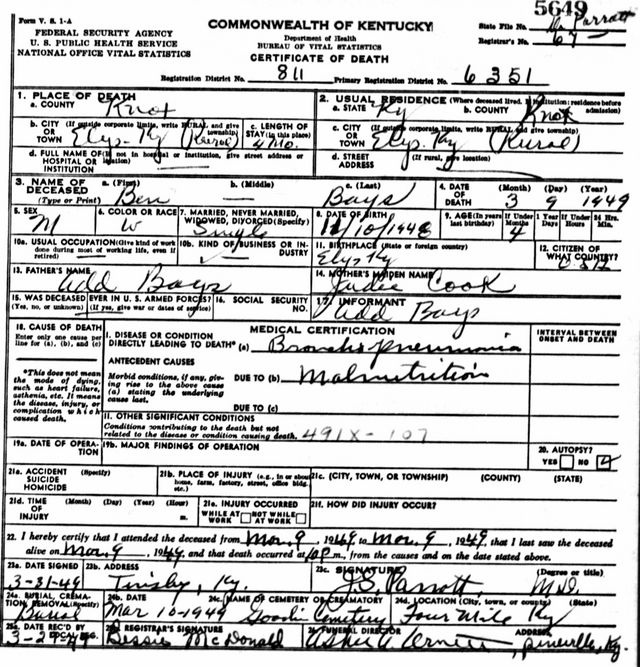 5649
Form V. S. 1-A
COMMONWEALTH OF KENTUCKY
State File No. Dr Parrott
FEDERAL SECURITY AGENCY
U. S. PUBLIC HEALTH SERVICE
NATIONAL OFFICE VITAL STATISTICS
Department of Health
BUREAU OF VITAL STATISTICS
CERTIFICATE OF DEATH
Registrar's No. 67
Registration District No. 811 Primary Registration District No. 6351
1. PLACE OF DEATH
a. COUNTY Knox
2. USUAL RESIDENCE (Where deceased lived. If institution: residence before admission)
a. STATE Ky b. COUNTY Knox
b. CITY (If outside corporate limits, write RURAL and give township) OR TOWN Elys-Ky (Rural)
c. LENGTH OF STAY (in this place) 4 Mo.
c. CITY (If outside corporate limits, write RURAL and give township) OR TOWN Elys, Ky (Rural)
d. FULL NAME OF (If not in hospital or institution, give street address or location) HOSPITAL OR INSTITUTION
d. STREET ADDRESS (If rural, give location)
3. NAME OF DECEASED (Type or Print)
a. (First) Ben
b. (Middle) –
c. (Last) Bays
4. DATE OF DEATH (Month) (Day) (Year) 3 9 1949
5. SEX M
6. COLOR OR RACE W
7. MARRIED, NEVER MARRIED, WIDOWED, DIVORCED (Specify) Single
8. DATE OF BIRTH 11/10/1948
9. AGE (In years last birthday) If Under 1 Year Months Days 4 If Under 24 Hrs. Hours Min.
10a. USUAL OCCUPATION (Give kind of work done during most of working life, even if retired)
10b. KIND OF BUSINESS OR INDUSTRY
11. BIRTHPLACE (State or foreign country) Elys Ky
12. CITIZEN OF WHAT COUNTRY? USA
13. FATHER'S NAME Add Bays
14. MOTHER'S MAIDEN NAME Cook
15. WAS DECEASED EVER IN U. S. ARMED FORCES? (Yes, no, or unknown) (If yes, give war or dates of service)
16. SOCIAL SECURITY NO.
17. INFORMANT Add Bays
18. CAUSE OF DEATH
Enter only one cause per line for (a), (b), and (c)
MEDICAL CERTIFICATION
INTERVAL BETWEEN ONSET AND DEATH
I. DISEASE OR CONDITION DIRECTLY LEADING TO DEATH* (a) Broncho pneumonia
*This does not mean the mode of dying, such as heart failure, asthenia, etc. It means the disease, injury, or complication which caused death.
ANTECEDENT CAUSES
Morbid conditions, if any, giving rise to the above cause (a) stating the underlying cause last.
DUE TO (b) Malnutrition
DUE TO (c)
II. OTHER SIGNIFICANT CONDITIONS
Conditions contributing to the death but not related to the disease or condition causing death. 491X - 107
19a. DATE OF OPERATION
19b. MAJOR FINDINGS OF OPERATION
20. AUTOPSY?
YES NO
21a. ACCIDENT SUICIDE HOMICIDE (Specify)
21b. PLACE OF INJURY (e.g., in or about home, farm, factory, street, office bldg. etc.)
21c. (CITY, TOWN, OR TOWNSHIP) (COUNTY) (STATE)
21d. TIME OF INJURY (Month) (Day) (Year) (Hour) m.
21e. INJURY OCCURRED WHILE AT WORK NOT WHILE AT WORK
21f. HOW DID INJURY OCCUR?
22. I hereby certify that I attended the deceased from Mar. 9, 1949, to Mar. 9, 1949, that I last saw the deceased
alive on Mar. 9, 1949, and that death occurred at m., from the causes and on the date stated above.
23a. DATE SIGNED 3-31-49
23b. ADDRESS Trosby, Ky.
23c. SIGNATURE (Degree or title) Parrott M.D.
24a. BURIAL, CREMATION, REMOVAL (Specify) Burial
24b. DATE Mar 10-1949
24c. NAME OF CEMETERY OR CREMATORY Goodin Cemetery
24d. LOCATION (City, town, or county) (State) Four Mile Ky
25a. DATE REC'D BY LOCAL REG.
25b. REGISTRAR'S SIGNATURE Bessie McDonald
26. FUNERAL DIRECTOR ADDRESS Pineville, Ky.